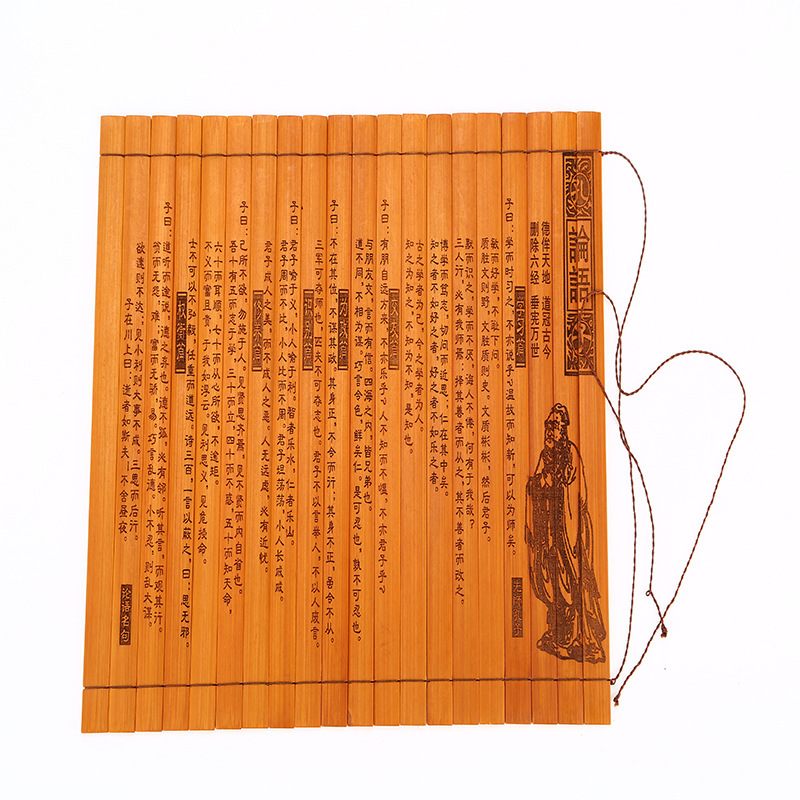 論語
德侔天地 道冠古今
删除六经 垂宪万世
子曰：学而时习之，不亦说乎？温故而知新，可以为师矣。
敏而好学，不耻下问。
质胜文则野，文胜质则史。文质彬彬，然后君子。
默而识之，学而不厌，诲人不倦，何有于我哉？
三人行，必有我师焉；择其善者而从之，其不善者而改之。
博学而笃志，切问而近思；仁在其中矣。
知之者不如好之者，好之者不如乐之者。
古之学者为己，今之学者为人。
知之为知之，不知为不知，是知也。
子曰：有朋自远方来，不亦乐乎？人不知而不愠，不亦君子乎？
与朋友交，言而有信。四海之内，皆兄弟也。
道不同，不相为谋。巧言令色，鲜矣仁。是可忍也，孰不可忍也。
子曰：不在其位，不谋其政。其身正，不令而行；其身不正，虽令不从。
三军可夺帅也，匹夫不可夺志也。君子不以言举人，不以人废言。
子曰：君子喻于义，小人喻于利。智者乐水，仁者乐山。
君子周而不比，小人比而不周。君子坦荡荡，小人长戚戚。
君子成人之美，而不成人之恶。人无远虑，必有近忧。
子曰：己所不欲，勿施于人。见贤思齐焉，见不贤而内自省也。
吾十有五而志于学，三十而立，四十而不惑，五十而知天命，
六十而耳顺，七十而从心所欲，不逾矩。
不义而富且贵，于我如浮云。见利思义，见危授命。
士不可以不弘毅，任重而道远。诗三百，一言以蔽之，曰：思无邪。
子曰：道听而途说，德之弃也。德不孤，必有邻。听其言，而观其行。
贫而无怨，难；富而无骄，易。巧言乱德。小不忍，则乱大谋。
欲速则不达；见小利则大事不成。三思而后行。
子在川上曰：逝者如斯夫！不舍昼夜。
论语名句